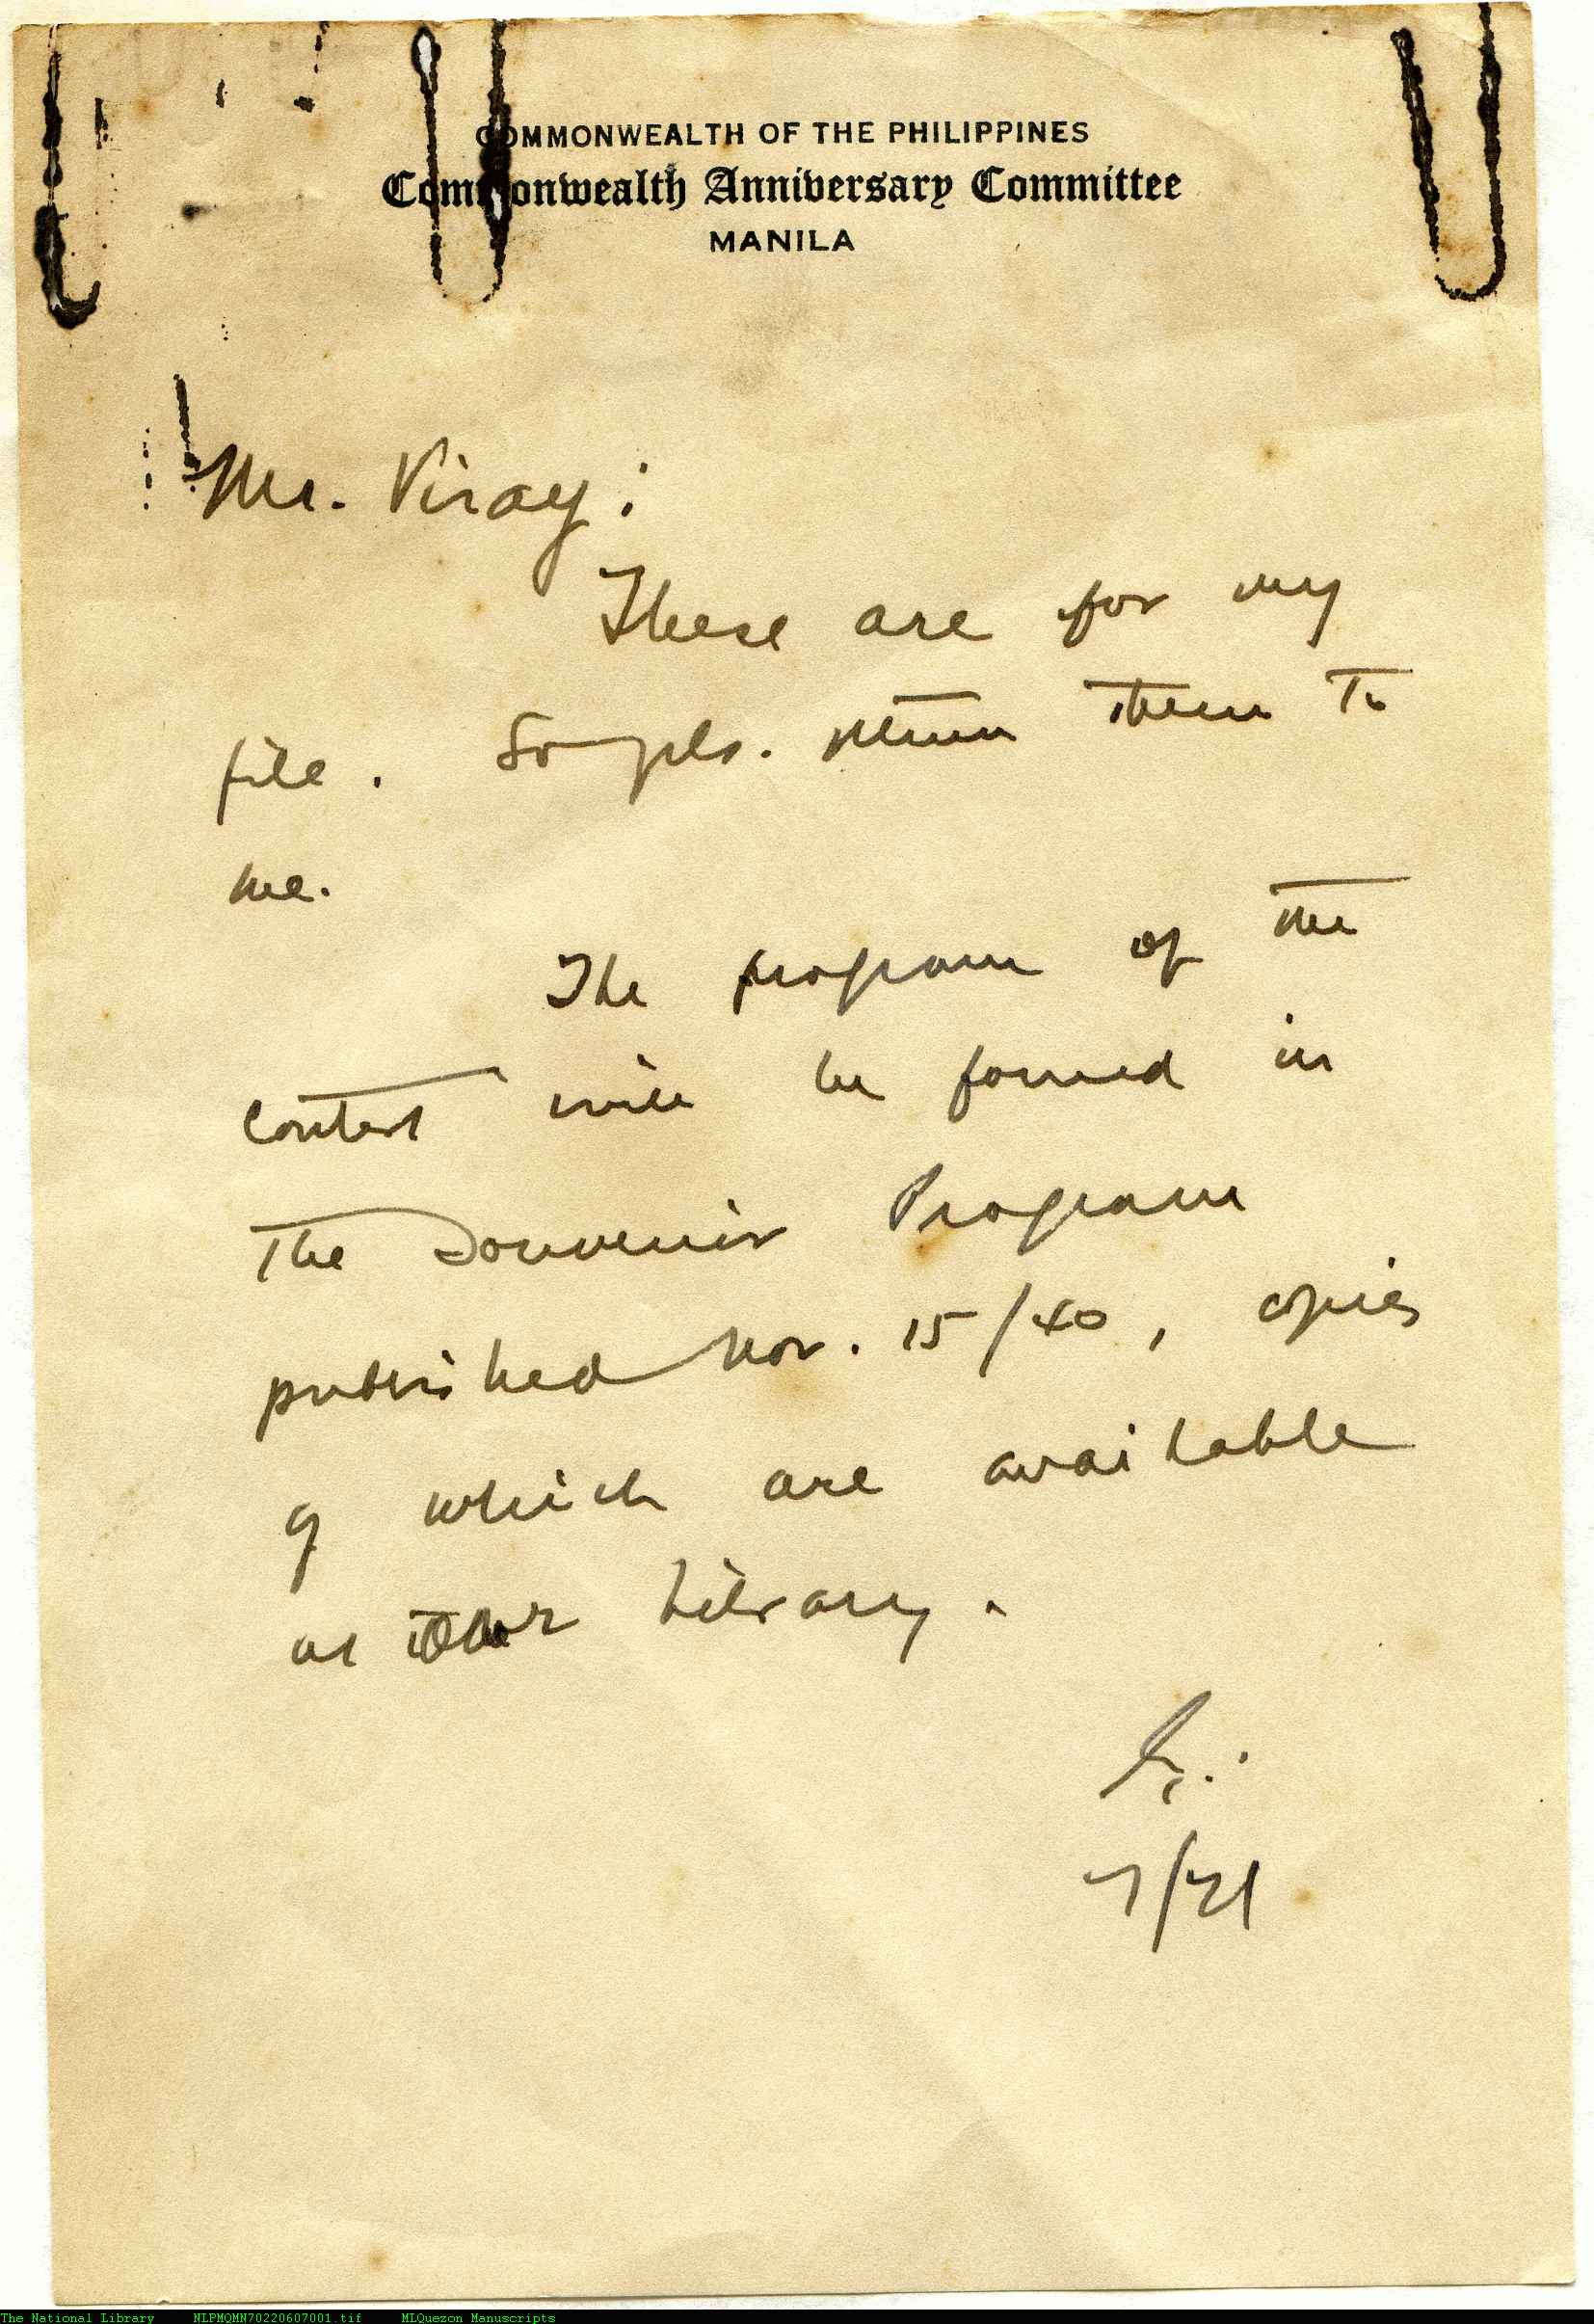 COMMONWEALTH OF THE PHILIPPINES
Commonwealth Anniversary Committee
MANILA
Mr. Viray:
These are for my
file. So pls. return them to
me.
The program of the
contest will be found in
the Souvenir Program
published Nov. 15/40, copies
of which are available
at our Library.
7/21
The National Library NLPMQMN70220607001.tif MLQuezon Manuscripts